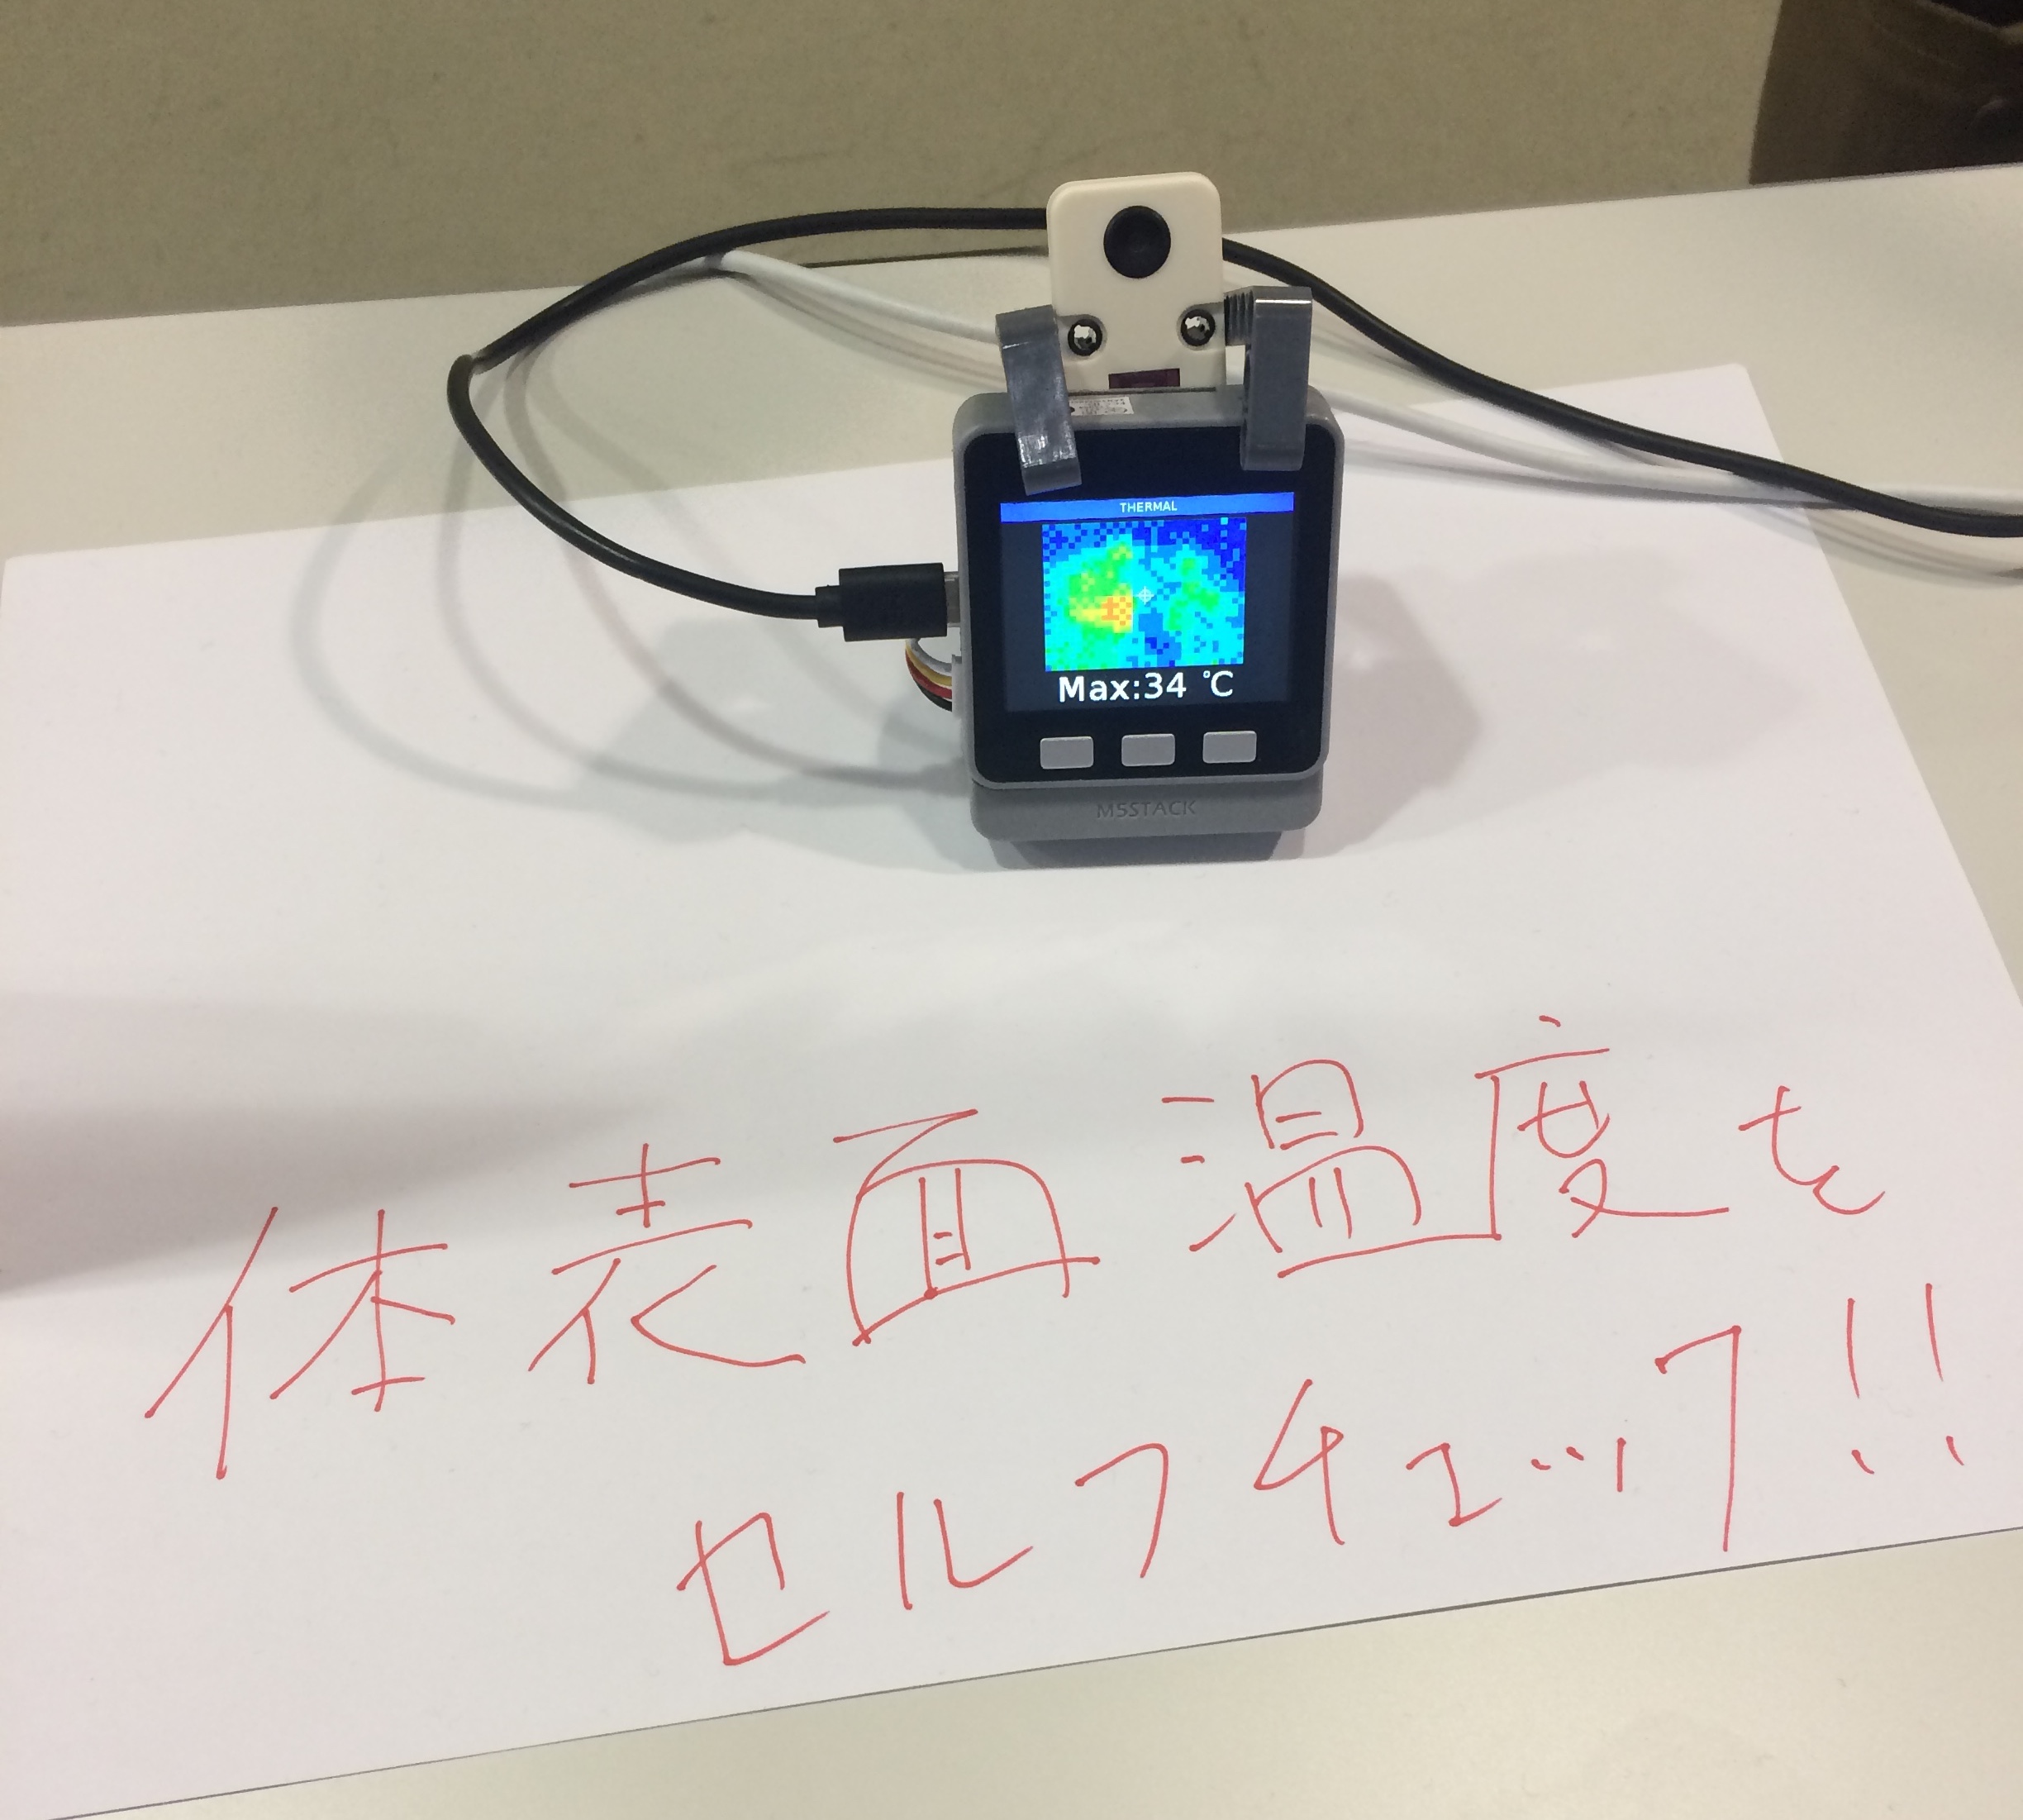 THERMAL
Max:34 ℃
M5STACK
体表面温度も
セルフチェック!!